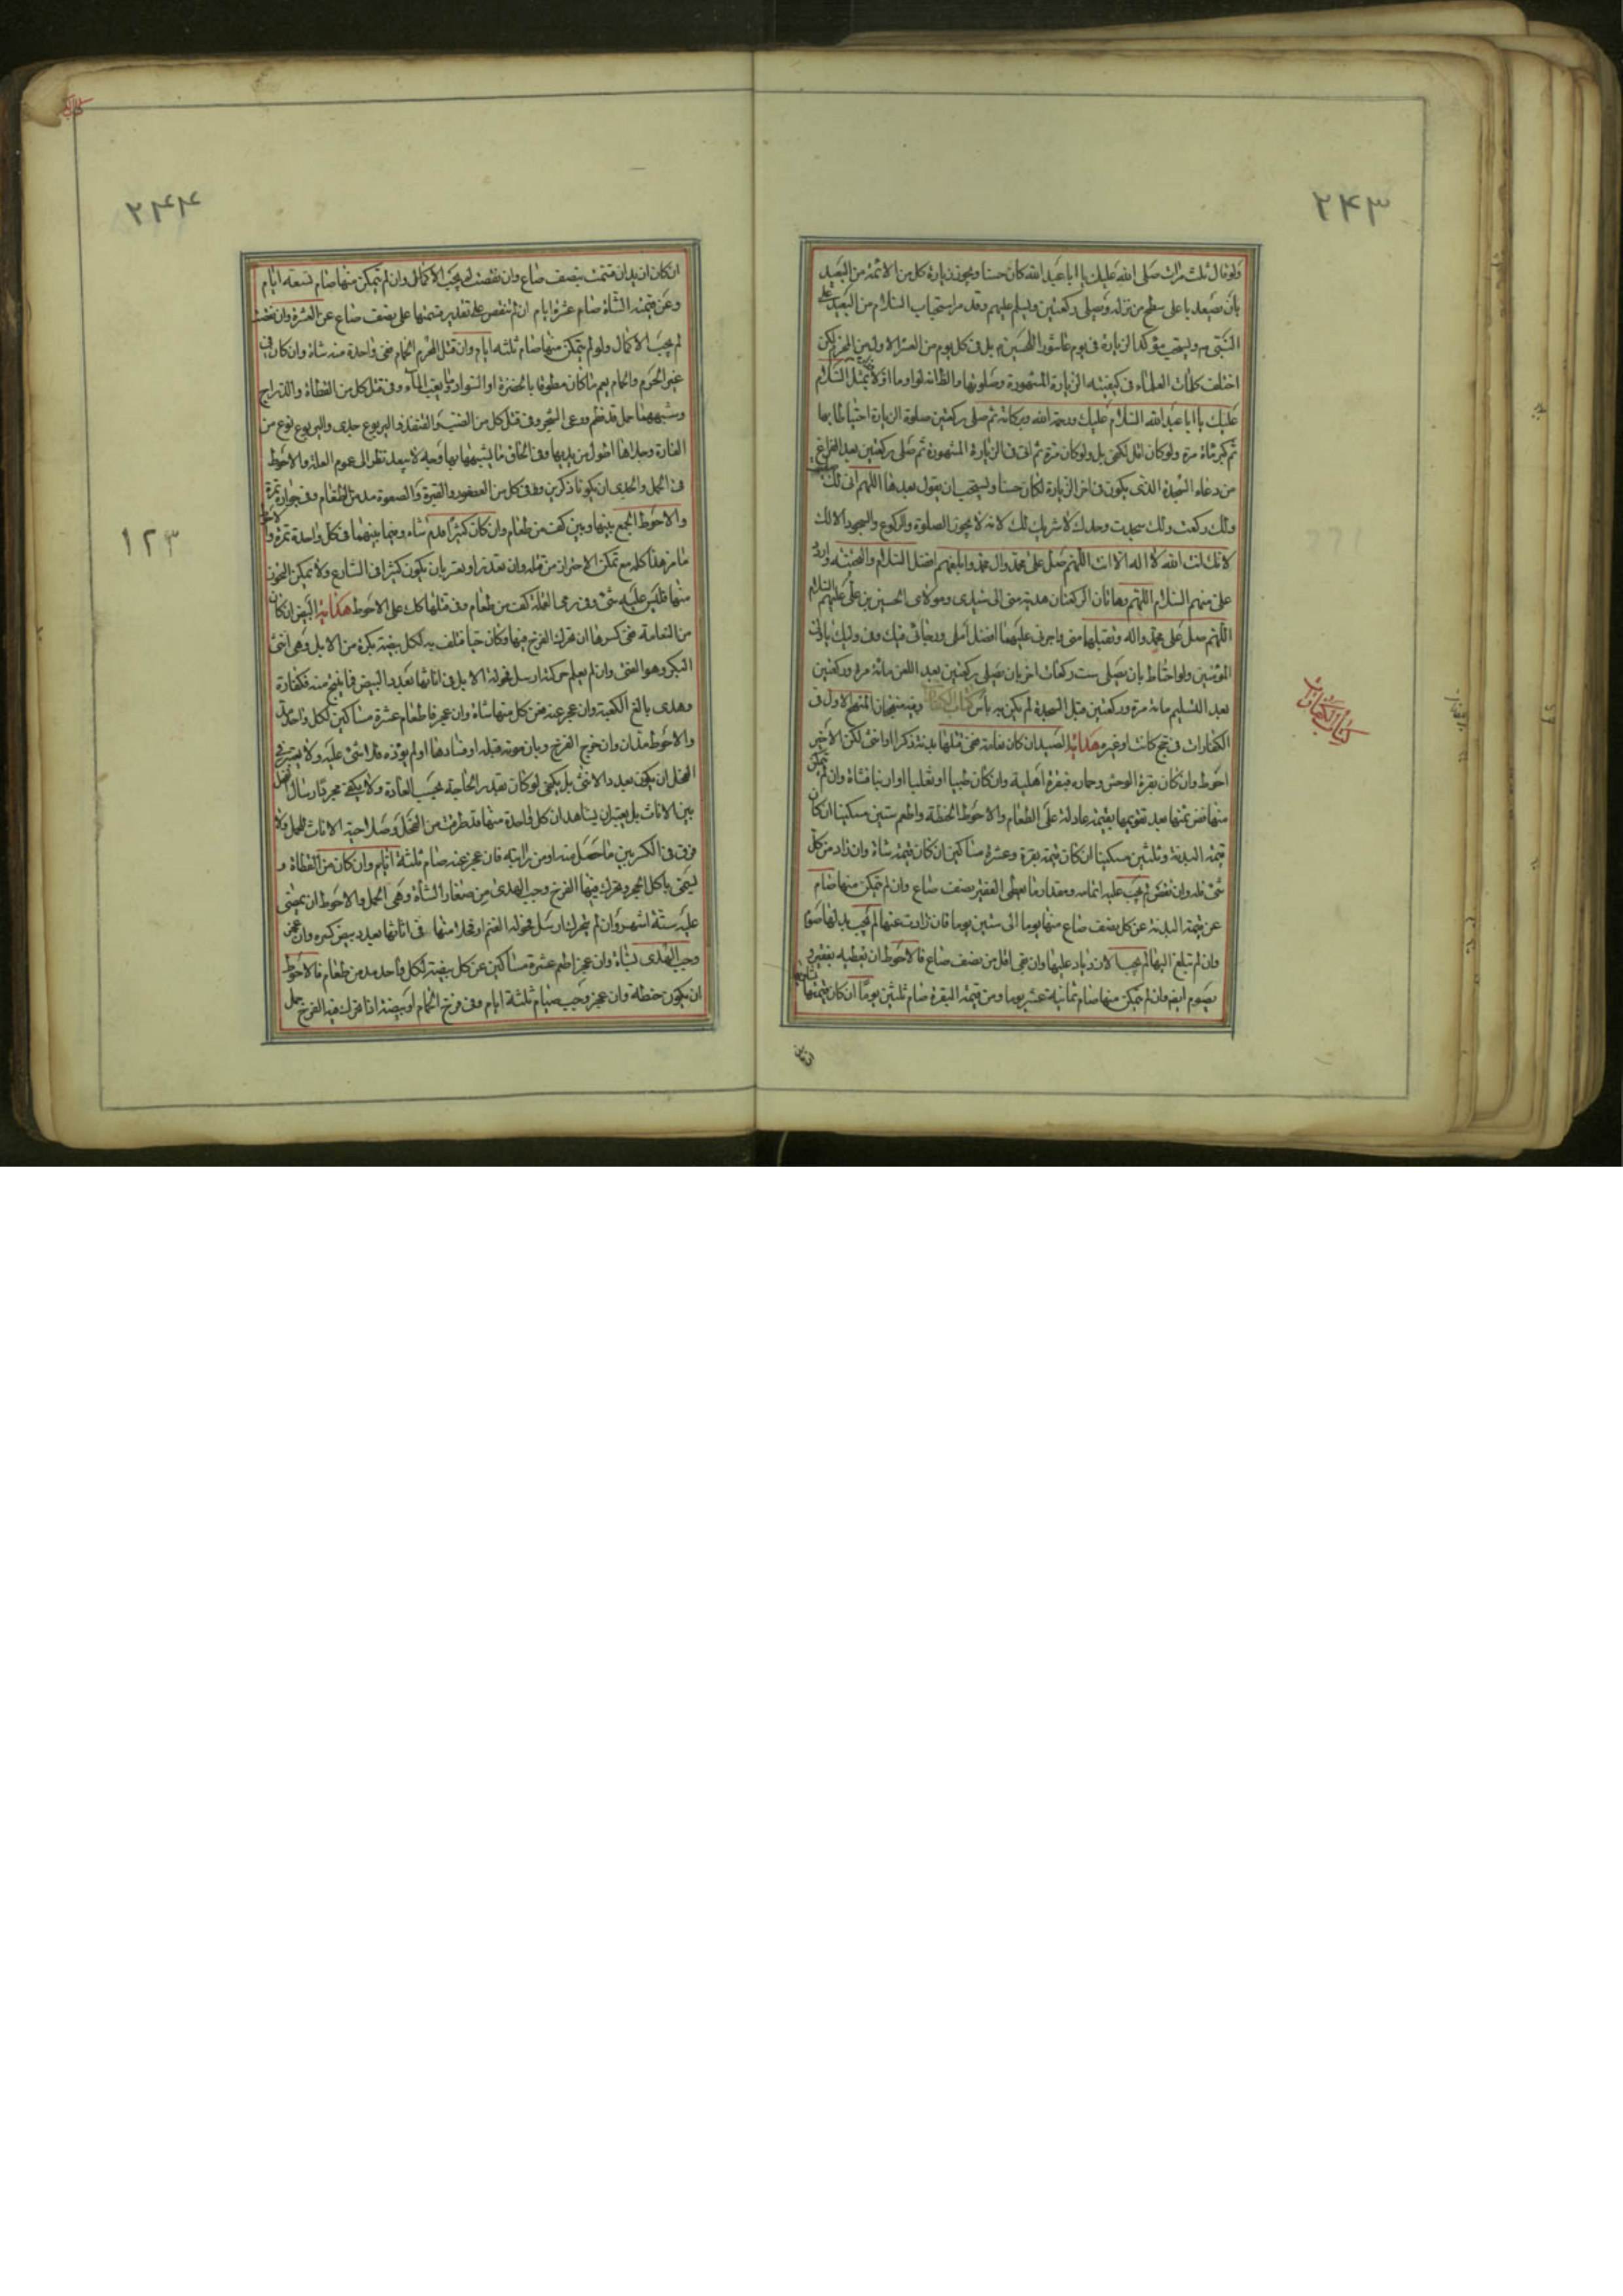 ۲۴۳
ولو قال ثلث مرات صلى الله عليك يا ابا عبد الله كان حسنا ويجوز زيارة كل من الائمة من البعيد
بان يصعد باعلى سطح من منزله ويصلى ركعتين ويسلم عليهم وقد مر استحباب السلام من البعيد على
النبى ص ويستحب مؤكدا لزيارة فى يوم عاشورا للحسين ع بل فى كل يوم من العشر الاول من المحرم لكن
اختلفت كلمات العلماء فى كيفيته الزيارة المشهورة وصلوتها والظاهر لو اوما اولا بمثل السلام
عليك يا ابا عبد الله السلام عليك ورحمة الله وبركاته ثم صلى ركعتين صلوة الزيارة احتياطا بها
ثم كبر مائة مرة ولو كان اقل لكفى بل ولو كان مرة ثم اتى فى الزيارة المشهورة ثم صلى ركعتين بعد الفراغ
من دعاء السجدة الذى يكون فى اخر الزيارة لكان حسنا ويستحب ان يقول بعدها اللهم انى لك صليت
ولك ركعت ولك سجدت وحدك لا شريك لك لانه لا يجوز الصلوة والركوع والسجود الا لك
لانك انت الله لا اله الا انت اللهم صل على محمد وال محمد وابلغهم افضل السلام والتحية واردد
على منهم السلام اللهم وهاتان الركعتان هدية منى الى سيدى ومولاى الحسين بن على عليهم السلام
اللهم صل على محمد واله وتقبلها منى واجرنى عليهما افضل املى ورجائى فيك وفى وليك يا ولى
المؤمنين ولو احتاط بان يصلى ست ركعات اخر بان يصلى ركعتين بعد اللعن مائة مرة وركعتين
بعد التسليم مائة مرة وركعتين قبل السجدة لم يكن به بأس كتاب الكفارات وفيه منهجان المنهج الاول فى
الكفارات فى حج كانت او غيره هداية الصيد ان كان نعامة ففى قتلها بدنة ذكرا او انثى لكن الاخير
احوط وان كان بقرة الوحش وحماره فبقرة اهلية وان كان ظبيا او ثعلبا او ارنبا فشاة وان لم يتمكن
منها فض ثمنها بعد تقويمها بقيمة عادلة على الطعام والاحوط الحنطة واطعم ستين مسكينا ان كان
قيمة البدنة وثلثين مسكينا ان كان قيمة بقرة وعشرة مساكين ان كان قيمة شاة وان زاد من كل
شئ فله وان نقص لم يجب عليه اتمامه ومقدار ما يعطى الفقير نصف صاع وان لم يتمكن منها صام
عن قيمة البدنة عن كل نصف صاع منها يوما الى ستين يوما فان زادت عنها لم يجب بدلها صوم
وان لم تبلغ اليها لم يجب الازدياد عليها وان بقى اقل من نصف صاع فالاحوط ان يعطيه بفقير و
يصوم ايضا وان لم يتمكن منها صام ثمانية عشر يوما ومن قيمة البقرة صام ثلثين يوما ان كان قيمتها
كتاب الكفارات
۲۴۴
ان كان ازيد ان قيمت بنصف صاع وان نقصت لم يجب الاكمال وان لم يتمكن منها صام تسعة ايام
وعن قيمة الشاة صام عشرة ايام ان لم تنقص على تقدير قيمتها على نصف صاع عن العشرة وان نقصت
لم يجب الاكمال ولو لم يتمكن منها صام ثلثة ايام وان قتل المحرم الحمام ففى واحدة منه شاة وان كان فى
غير الحرم والحمام يعم ما كان مطوقا بالخضرة او السواد وما يعب الماء وفى قتل كل من القطاة والدراج
وشبههما حمل قد فطم ورعى الشجر وفى قتل كل من الضب والقنفذ واليربوع جدى واليربوع نوع من
الفارة وجلاها اطول من يديها وفى الحاق ما يشبهها بها وجه لا يبعد نظرا الى عموم العلة والاحوط
فى الحمل والجدى ان يكونا ذكرين وفى كل من العصفور والقبرة والصعوة مد من الطعام وفى جرادة تمرة
والاحوط الجمع بينها وبين كف من طعام وان كان كثيرا فدم شاة وفيما بينهما فى كل واحدة تمرة والاحوط
ما مر هذا كله مع تمكن الاحتراز من قتله وان تعذر او تعسر بان يكون كثيرا فى الشارع ولا يمكن التحرز
منها فليس عليه شئ وفى رمى القملة كف من طعام وفى قتلها كل على الاحوط هداية البيض ان كان
من النعامة ففى كسرها ان تحرك الفرخ فيها وكان حيا فتلف به لكل بيضة بكرة من الابل وهى انثى
البكر وهو الفتى وان لم يعلم حركته ارسل فحولة الابل فى اناثها بعدد البيض فما ينتج منه فكفارة
وهدى بالغ الكعبة وان عجز عنه فعن كل منها شاة وان عجز فاطعام عشرة مساكين لكل واحد مد
والاحوط مدان وان خرج الفرخ وبان موته قبله او فسادها او لم يؤذه فلا شئ عليه ولا يعتبر فى
الفحل ان يكون بعدد الانثى بل يكفى لو كان بقدر الحاجة بحسب العادة ولا يكفى مجرد ارسال الفحل
بين الاناث بل يعتبر ان يشاهد ان كل واحدة منها قد طرقت من الفحل وصلاحية الاناث للحمل ولا
فرق فى الكسر بين ما حصل منه او من دابته فان عجز عنه صام ثلثة ايام وان كان من القطاة و
ليتمنى ياكل الجرد وتحرك فيها الفرخ وجب الهدى من صغار الشاة وهى الحمل والاحوط ان يمضى
عليه ستة اشهر وان لم يتحرك ارسل فحولة الغنم او فحلا منها فى اناثها بعدد بيض كسره وان عجز
وجب الهدى بشاة وان عجز اطعم عشرة مساكين عن كل بيضة لكل واحد مد من طعام فالاحوط
ان يكون حنطة وان عجز وجب صيام ثلثة ايام وفى فرخ الحمام او بيضة اذا تحرك فيه الفرخ حمل
۱۲۳